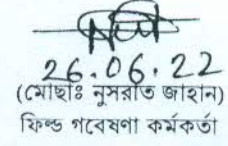 26.06.22
(মোছাঃ নুসরাত জাহান)
ফিল্ড গবেষণা কর্মকর্তা